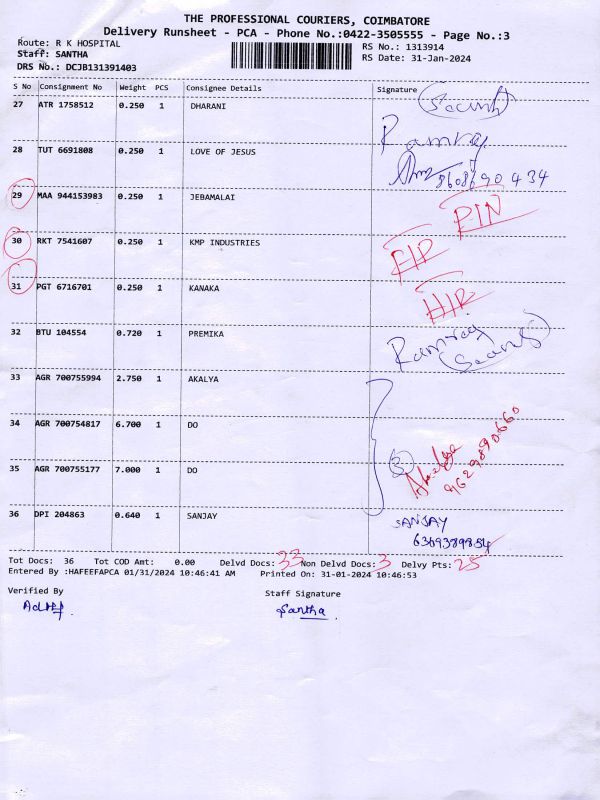 THE PROFESSIONAL COURIERS, COIMBATORE
Delivery Runsheet - PCA - Phone No.:0422-3505555 - Page No.:3
Route: R K HOSPITAL
RS No.: 1313914
Staff: SANTHA
RS Date: 31-Jan-2024
DRS No.: DCJB131391403
S No Consignment No Weight PCS Consignee Details Signature
27 ATR 1758512 0.250 1 DHARANI
28 TUT 6691808 0.250 1 LOVE OF JESUS Ramraj
29 MAA 944153983 0.250 1 JEBAMALAI PIN
30 RKT 7541607 0.250 1 KMP INDUSTRIES
31 PGT 6716701 0.250 1 KANAKA
32 BTU 104554 0.720 1 PREMIKA Ramraj
33 AGR 700755994 2.750 1 AKALYA
34 AGR 700754817 6.700 1 DO
35 AGR 700755177 7.000 1 DO 3 9629890660
36 DPI 204863 0.640 1 SANJAY SANJAY
6369389854
Tot Docs: 36 Tot COD Amt: 0.00 Delvd Docs: 33 Non Delvd Docs: 3 Delvy Pts: 25
Entered By :HAFEEFAPCA 01/31/2024 10:46:41 AM Printed On: 31-01-2024 10:46:53
Verified By Staff Signature
Santha